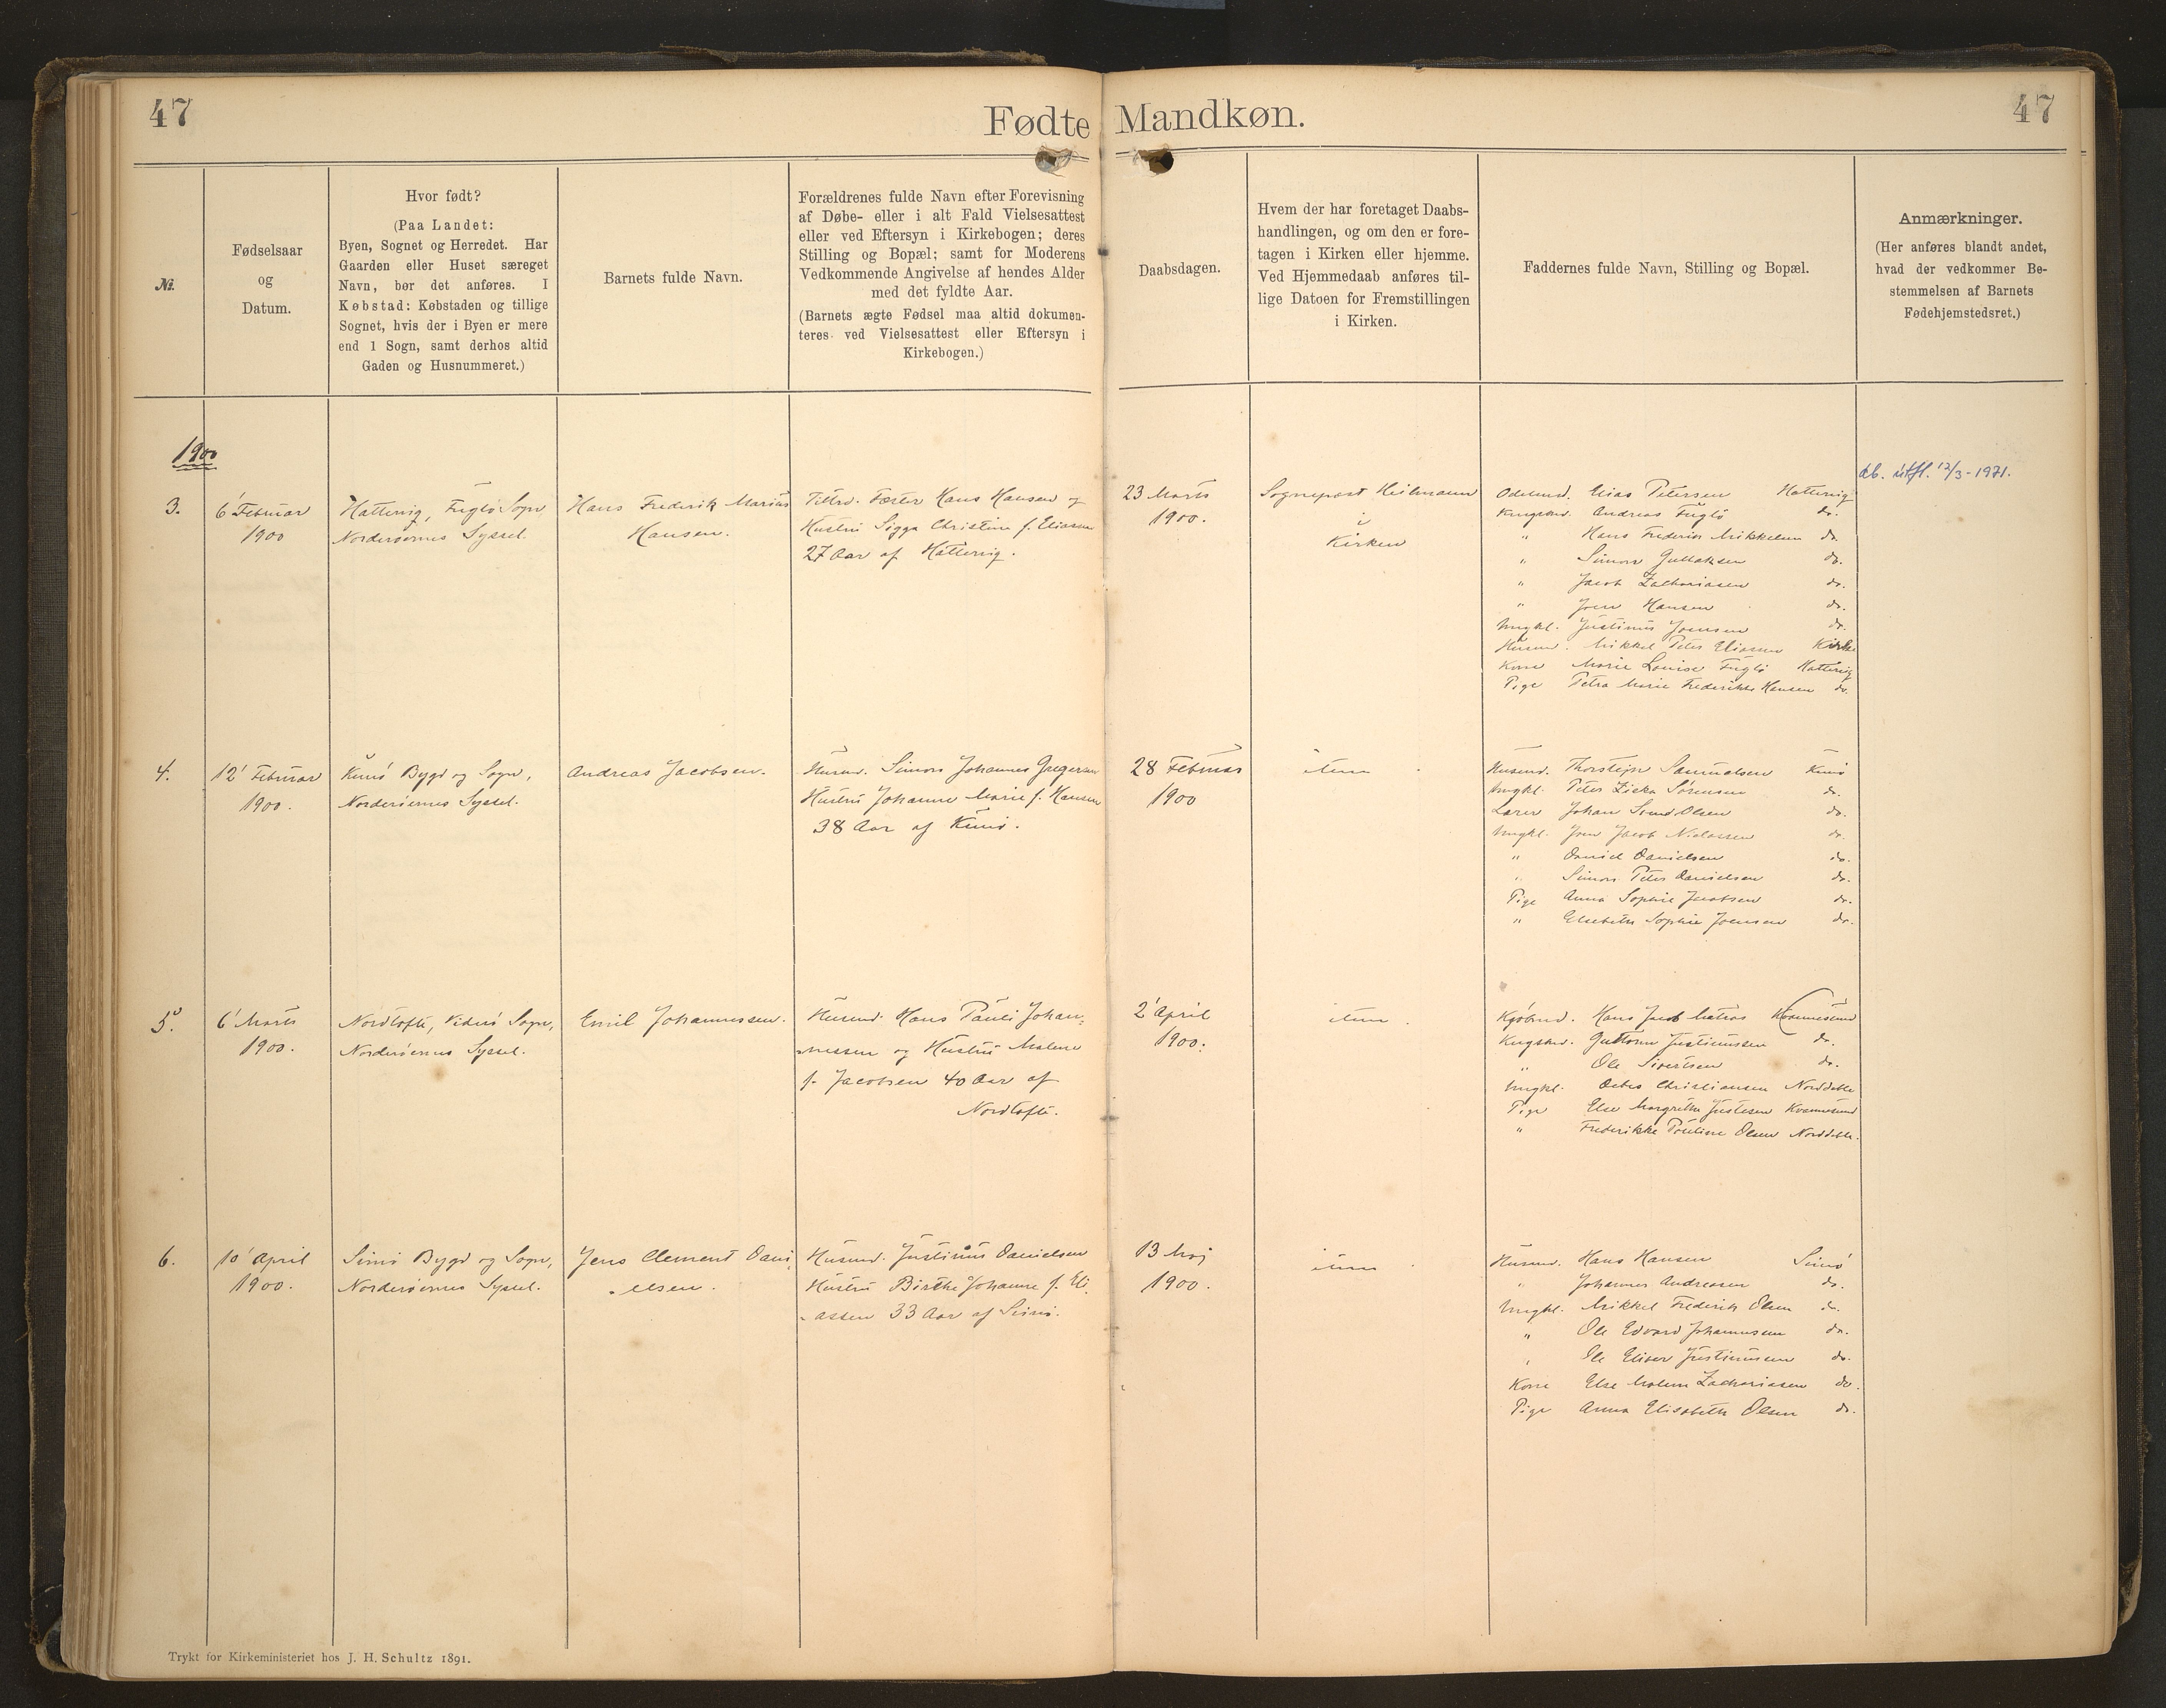 47
Fødte Mandkøn.
47
№.
Fødselsaar
og
Datum.
Hvor født?
(Paa Landet:
Byen, Sognet og Herredet. Har
Gaarden eller Huset særeget
Navn, bør det anføres. I
Købstad: Købstaden og tillige
Sognet, hvis der i Byen er mere
end 1 Sogn, samt derhos altid
Gaden og Husnummeret.)
Barnets fulde Navn.
Forældrenes fulde Navn efter Forevisning
af Døbe- eller i alt Fald Vielsesattest
eller ved Eftersyn i Kirkebogen; deres
Stilling og Bopæl; samt for Moderens
Vedkommende Angivelse af hendes Alder
med det fyldte Aar.
(Barnets ægte Fødsel maa altid dokumen-
teres ved Vielsesattest eller Eftersyn i
Kirkebogen.)
Daabsdagen.
Hvem der har foretaget Daabs-
handlingen, og om den er fore-
tagen i Kirken eller hjemme.
Ved Hjemmedaab anføres til-
lige Datoen for Fremstillingen
i Kirken.
Faddernes fulde Navn, Stilling og Bopæl.
Anmærkninger.
(Her anføres blandt andet,
hvad der vedkommer Be-
stemmelsen af Barnets
Fødehjemstedsret.)
1900
3.
6' Februar
1900
Hattervig, Fuglø Sogn,
Norderøernes Syssel.
Hans Frederik Marius
Hansen.
Fæster Hans Hansen og
Hustru Sigga Christine f. Eliasen
27 Aar af Hattervig.
23 Marts
1900.
Sognepræst Heilmann
i
Kirken
Odelsmd. Elias Petersen Hattervig
Kongsbmd. Andreas Fuglø do.
" Hans Frederik Mikkelsen do.
" Simon Gullaksen do.
" Jacob Zachariasen do.
" Joen Hansen do.
Ungkl. Justinus Joensen do.
Husmd. Mikkel Peter Eliasen Kirke
Kone Marie Louise Fuglø Hattervig
Pige Petra Marie Frederikke Hansen do.
db. útfl. 12/3-1971.
4.
12' Februar
1900.
Kunø Bygd og Sogn,
Norderøernes Syssel.
Andreas Jacobsen.
Husmd. Simon Johannes Gregersen
Hustru Johanne Marie f. Hansen
38 Aar af Kunø.
28 Februar
1900
item
Husmd. Thorstejn Samuelsen Kunø
Ungkl. Peter Ziska Sørensen do.
Lærer Johan Olsen do.
Ungkl. Joen Jacob Niclassen do.
" Daniel Danielsen do.
" Simon Peter Danielsen do.
Pige Anna Sophie Jacobsen do.
" Elsebeth Sophie Joensen do.
5.
6' Marts
1900.
Nordtofte, Viderø Sogn,
Norderøernes Syssel.
Emil Johannessen.
Husmd. Hans Pauli Johan-
nessen og Hustru Malene
f. Jacobsen 40 Aar af
Nordtofte.
2' April
1900.
item
Kjøbmd. Hans Jacob Matras Kvannesund
Kngsbmd. Guttorm Justinussen do.
" Ole Sivertsen do.
Ungkl. Debes Christiansen Norddeble
Pige Else Margrethe Justesen Kvannesund
" Frederikke Pouline Olsen Norddeble.
6.
10' April
1900.
Svinø Bygd og Sogn,
Norderøernes Syssel.
Jens Clement Dani-
elsen.
Husmd. Justinus Danielsen
Hustru Birthe Johanne f. Eli-
assen 33 Aar af Svinø.
13 Maj
1900.
item
Husmd. Hans Hansen Svinø
" Johannes Andreasen do.
Ungkl. Mikkel Frederik Olsen do.
" Ole Edvard Johannesen do.
" Ole Elieser Justinussen do.
Kone Else Malene Zachariasen do.
Pige Anna Elisabeth Olsen do.
Trykt for Kirkeministeriet hos J. H. Schultz 1891.